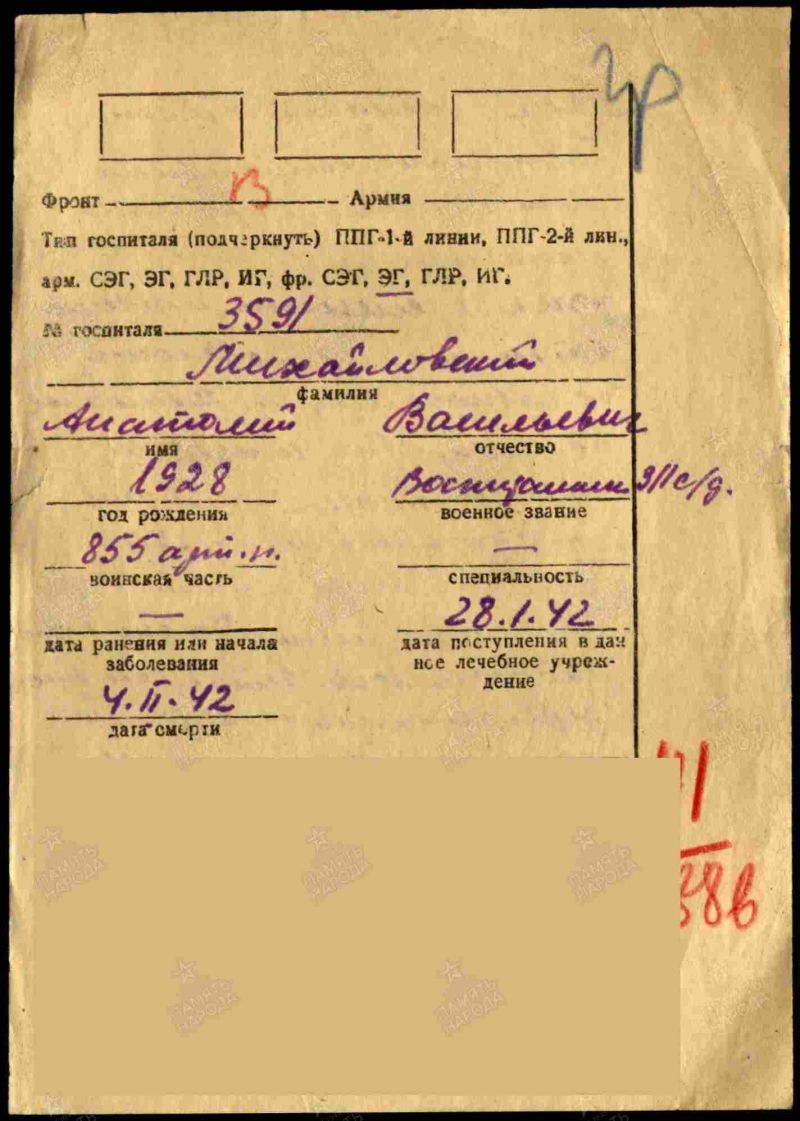 гр
Фронт В Армия
Тип госпиталя (подчеркнуть) ППГ-1-й линии, ППГ-2-й лин.,
арм. СЭГ, ЭГ, ГЛР, ИГ, фр. СЭГ, ЭГ, ГЛР, ИГ.
№ госпиталя 3591
Михайловский
фамилия
Анатолий Васильевич
имя отчество
1928 Воспитанник 311 с/д.
год рождения военное звание
855 арт. п. —
воинская часть специальность
— 28.1.42
дата ранения или начала дата поступления в дан
заболевания ное лечебное учреж-
дение
4.II.42
дата смерти
58в
ПАМЯТЬ НАРОДА